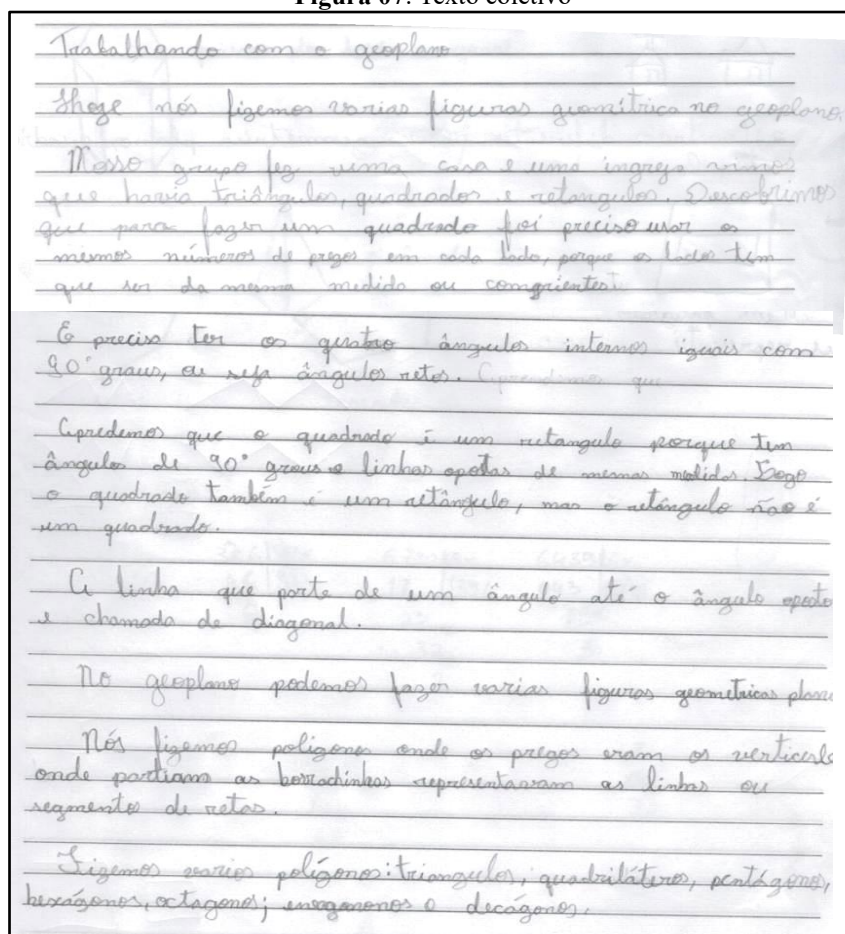 Figura 07: Texto coletivo
Trabalhando com o geoplano
Hoge nós fizemos varias figuras geomitrica no geoplano
Nosso grupo fez uma casa e uma ingreja vimos
que havia triângulos, quadrados e retangulos. Descobrimos
que para fazer um quadrado foi preciso usar os
mesmos números de pregos em cada lado, porque os lados tem
que ser da mesma medida ou
É preciso ter os quatro ângulos internos iguais com
90° graus, ou seja ângulos retos. Aprendemos que
Apredemos que o quadrado é um retangulo porque tem
ângulos de 90° graus e linhas opostas de mesmas medidas. Logo
o quadrado também é um retângulo, mas o retângulo não é
um quadrado.
A linha que parte de um ângulo até o ângulo oposto
e chamada de diagonal.
No geoplano podemos fazer varias figuras geometricas plana
Nós fizemos poligonos onde os pregos eram os
onde partiam as borrachinhas representavam as linhas ou
segmento de retas.
Fizemos varios polígonos: triangulos, quadriláteros, pentágonos,
hexágonos, octagonos; e decágonos.